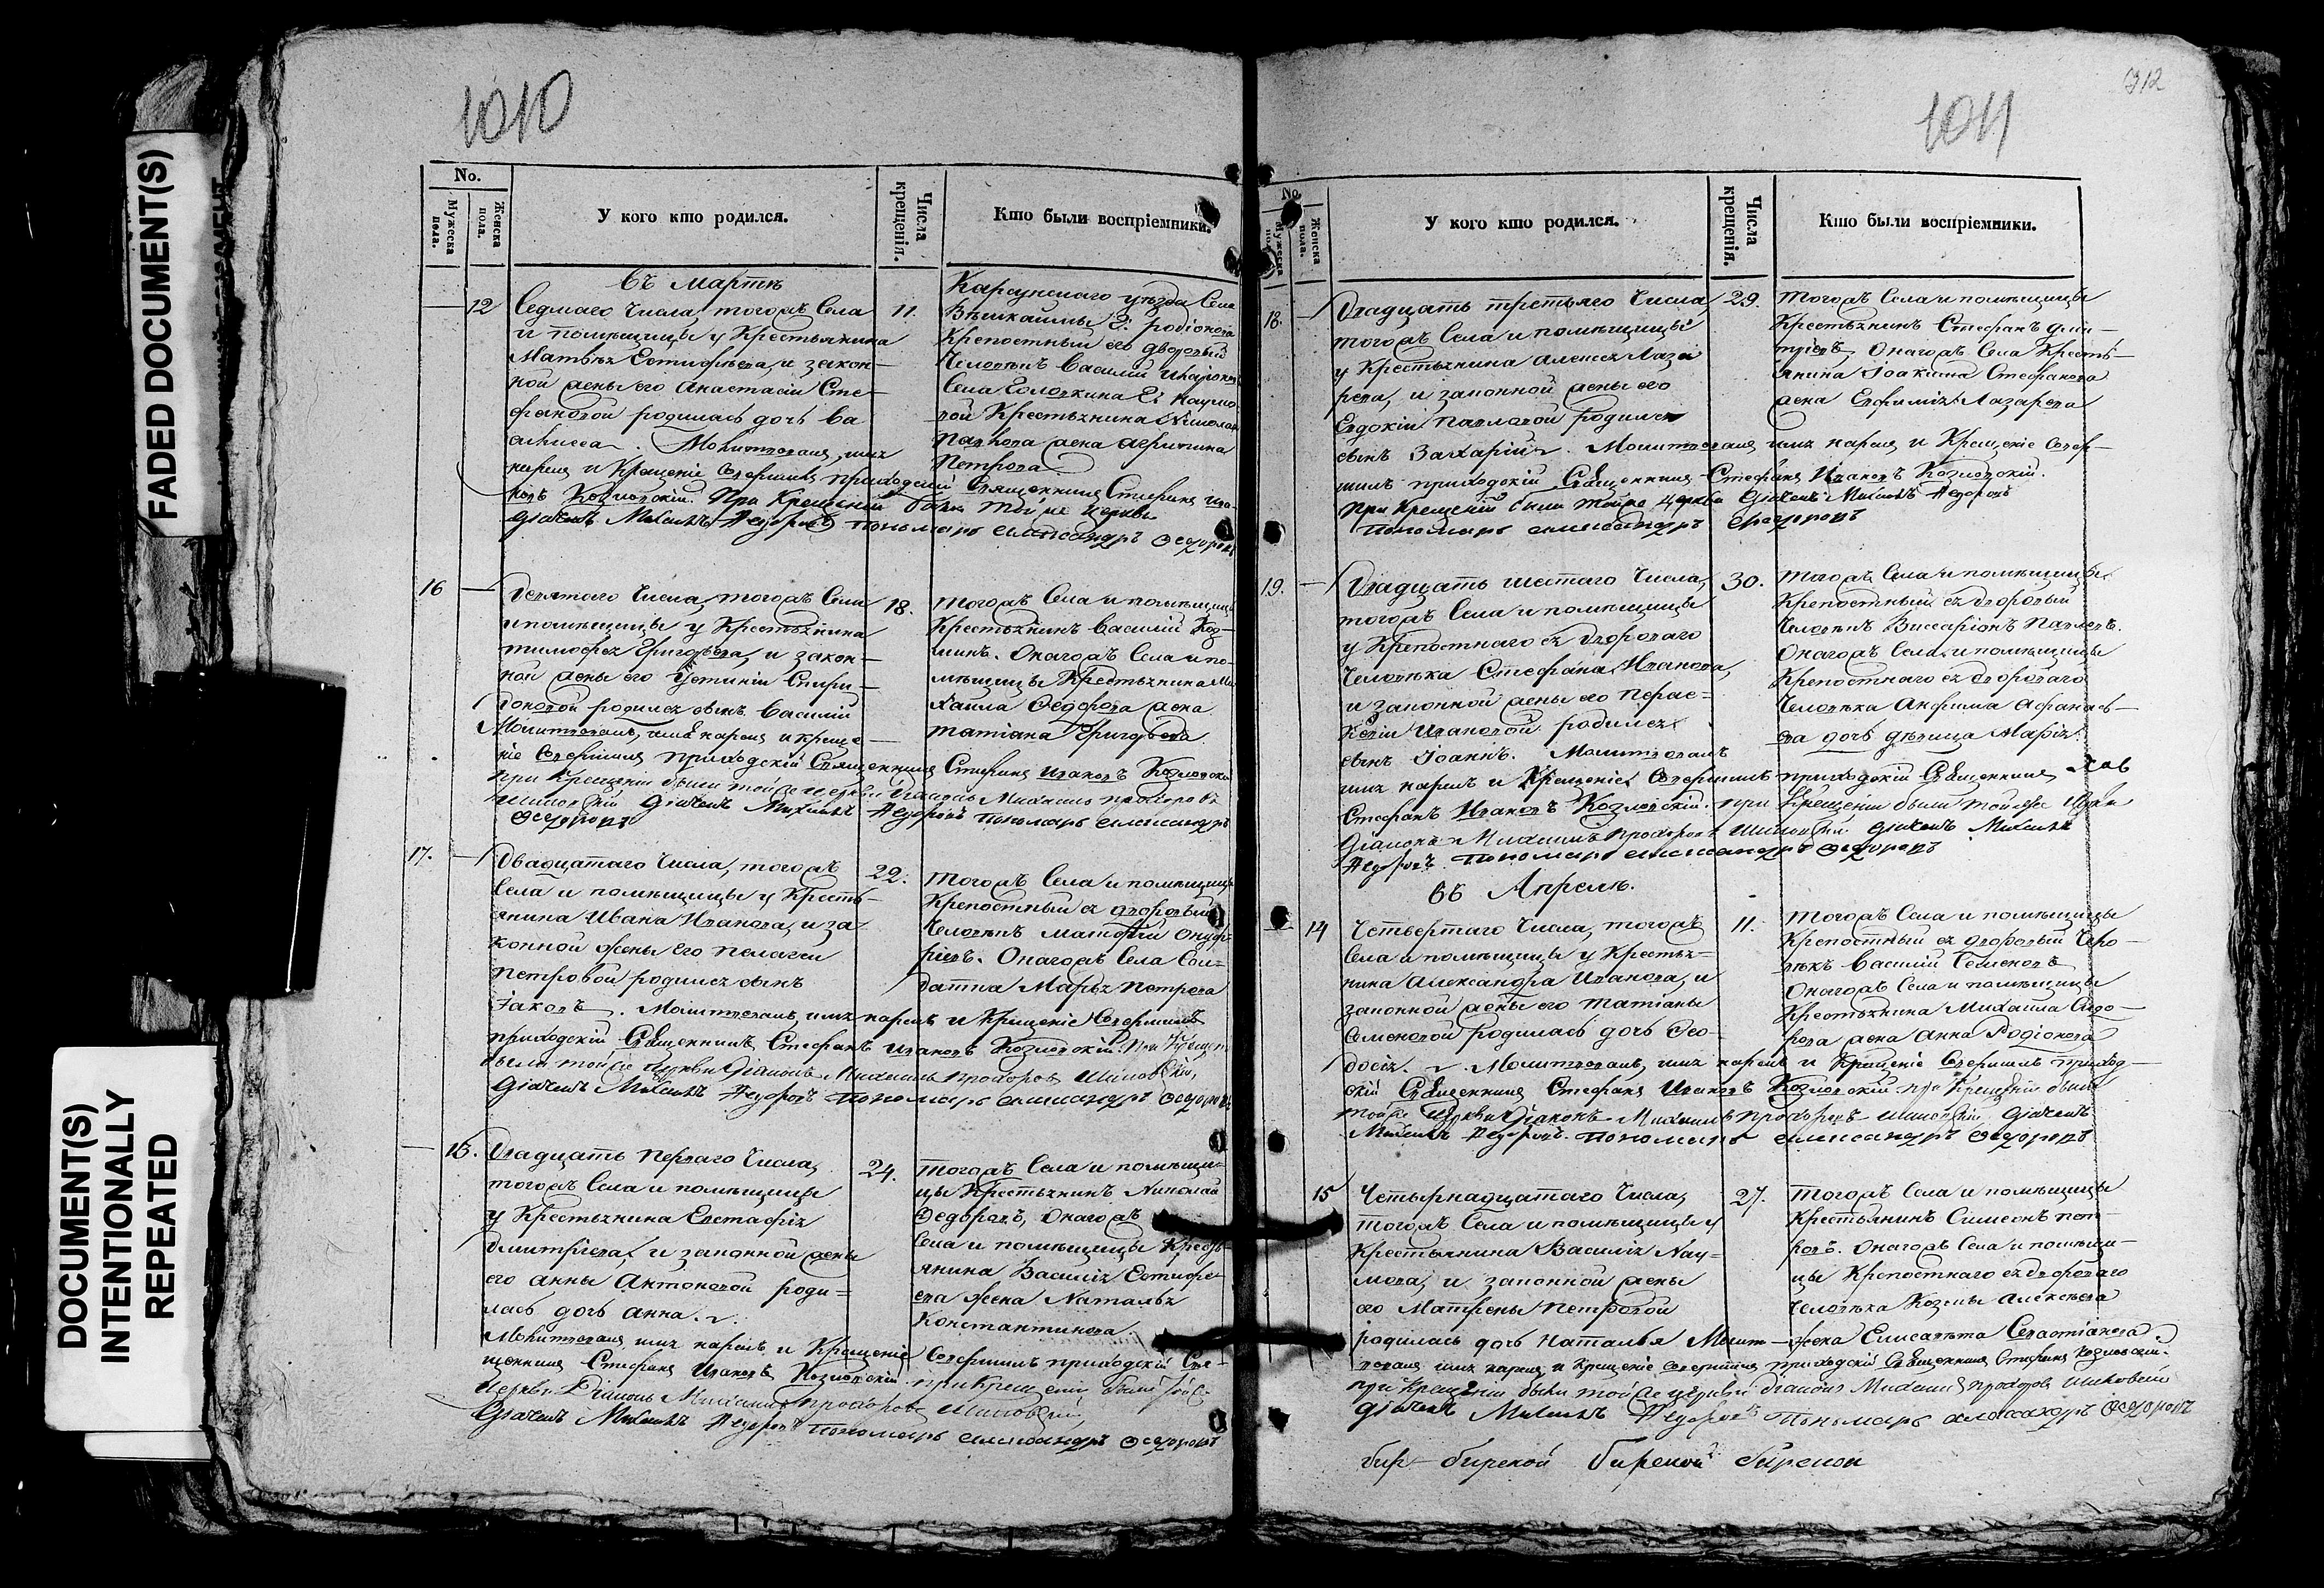 FADED DOCUMENT(S)
DOCUMENT(S)
INTENTIONALLY
REPEATED
1010
No.
Мужеска пола.
Женска пола.
У кого кто родился.
Числа крещенія.
Кто были воспріемники.
въ Мартѣ
12
Седмаго Числа, тогожъ Села
и помѣщицы у Крестьянина
ной жены его Анастасіи Сте-
фановой родилась дочь Ва
силисса. Молитвовалъ, имя
нарекъ и Крещеніе Совершилъ приходскій Священникъ Стефанъ Ива-
новъ Козловскій. При Крещеніи были той же церкви
дьячекъ Михаилъ Федоровъ пономарь Александръ Федоровъ
11.
Карсунскаго уѣзда Села
Крепостный его дворовый
Человѣкъ Василій
Крестьянина Николая
Павлова жена
Петрова
16
Девятаго Числа, тогожъ Села
и помѣщицы у Крестьянина
Тимофея Григорьева, и закон-
ной жены его Устиніи Спири-
доновой родился сынъ Василій
Молитвовалъ, имя нарекъ и креще-
ніе Совершилъ приходскій Священникъ Стефанъ Ивановъ Козловскій
при крещеніи были той же церкви Діаконъ Михаилъ Прохоровъ
дьячекъ Михаилъ Федоровъ пономарь Александръ
Федоровъ
18.
Тогожъ Села и помѣщицы
Крестьянинъ Василій Коз-
минъ. Онагожъ Села и по-
мѣщицы Крестьянина Ми
хаила Федорова жена
Татіана Григорьева
17.
Двадцатаго Числа, тогожъ
Села и помѣщицы у Кресть-
янина Ивана Иванова, и за
конной жены его Пелагеи
Петровой родился сынъ
Іаковъ. Молитвовалъ, имя нарекъ и Крещеніе Совершилъ
приходскій Священникъ Стефанъ Ивановъ Козловскій. При Крещеніи
были той же церкви Діаконъ Михаилъ Прохоровъ
дьячекъ Михаилъ Федоровъ пономарь Александръ Федоровъ
22.
Тогожъ Села и помѣщицы
Крепостный ея дворовый
Человѣкъ Матвѣй Онуф-
ріевъ. Онагожъ Села Сол-
датка Марья Петрова
13.
Двадцать перваго Числа,
тогожъ Села и помѣщицы
у Крестьянина Евстафія
Дмитріева, и законной жены
его Анны Антоновой роди-
лась дочь Анна.
Молитвовалъ, имя нарекъ и Крещеніе Совершилъ приходскій Свя-
щенникъ Стефанъ Ивановъ Козловскій при Крещеніи были той же
церкви Діаконъ Михаилъ Прохоровъ
дьячекъ Михаилъ Федоровъ пономарь Александръ Федоровъ
24.
Тогожъ Села и помѣщи-
цы Крестьянинъ Николай
Федоровъ, Онагожъ
Села и помѣщицы Кресть-
янина Василія
жена Наталья
Константинова
312
1011
No.
Мужеска пола.
Женска пола.
У кого кто родился.
Числа крещенія.
Кто были воспріемники.
18.
Двадцать третьяго Числа,
тогожъ Села и помѣщицы
у Крестьянина Алексея Лаза
рева, и законной жены его
Евдокіи Павловой родился
сынъ Захарій. Молитвовалъ имя нарекъ и Крещеніе Совер-
шилъ приходскій Священникъ Стефанъ Ивановъ Козловскій.
При Крещеніи были той же церкви дьячекъ Михаилъ Федоровъ
пономарь Александръ Федоровъ
29.
Тогожъ Села и помѣщицы
Крестьянинъ Стефанъ Дми-
тріевъ, Онагожъ Села Кресть-
янина Іоакима Стефанова
жена Евфимія Лазарева
19.
Двадцать шестаго Числа,
тогожъ Села и помѣщицы
у Крепостнаго ея дворового
Человѣка Стефана Иванова,
и законной жены его Парас-
кевіи Ивановой родился
сынъ Іоаннъ. Молитвовалъ
имя нарекъ и Крещеніе Совершилъ приходскій Священникъ
Стефанъ Ивановъ Козловскій. при Крещеніи были той же
Діаконъ Михаилъ Прохоровъ дьячекъ Михаилъ
Федоровъ пономарь Александръ Федоровъ
30.
Тогожъ Села и помѣщицы
Крепостный ея дворовый
Человѣкъ Виссаріонъ Павловъ.
Онагожъ Села и помѣщицы
Крепостнаго ея дворового
Человѣка Анфима Афанась-
ева дочь дѣвица Марія.
въ Апрелѣ.
14
Четвертаго Числа, тогожъ
Села и помѣщицы у Крестья-
нина Александра Иванова, и
законной жены его Татіаны
Семеновой родилась дочь Фео-
досія. Молитвовалъ, имя нарекъ и Крещеніе Совершилъ приход-
скій Священникъ Стефанъ Ивановъ Козловскій при Крещеніи были
той же церкви Діаконъ Михаилъ Прохоровъ дьячекъ
Михаилъ Федоровъ. пономарь Александръ Федоровъ
11.
Тогожъ Села и помѣщицы
Крепостный ея дворовый Чело-
вѣкъ Василій Семеновъ
Онагожъ Села и помѣщицы
Крестьянина Михаила Федо-
рова жена Анна Родіонова
15
Четырнадцатаго Числа,
тогожъ Села и помѣщицы у
Крестьянина Василія Нау-
мова, и законной жены
его Матрены Петровой
родилась дочь Наталья Молит-
вовалъ имя нарекъ и Крещеніе Совершилъ приходскій Священникъ Стефанъ Козловскій.
при Крещеніи были той же церкви Діаконъ Михаилъ Прохоровъ
дьячекъ Михаилъ Федоровъ пономарь Александръ Федоровъ
27.
Тогожъ Села и помѣщицы
Крестьянинъ Симеонъ Пет-
ровъ. Онагожъ Села и помѣщи-
цы Крепостнаго ея дворового
Человѣка Козмы Алексѣева
жена Елисавета Севастіанова.